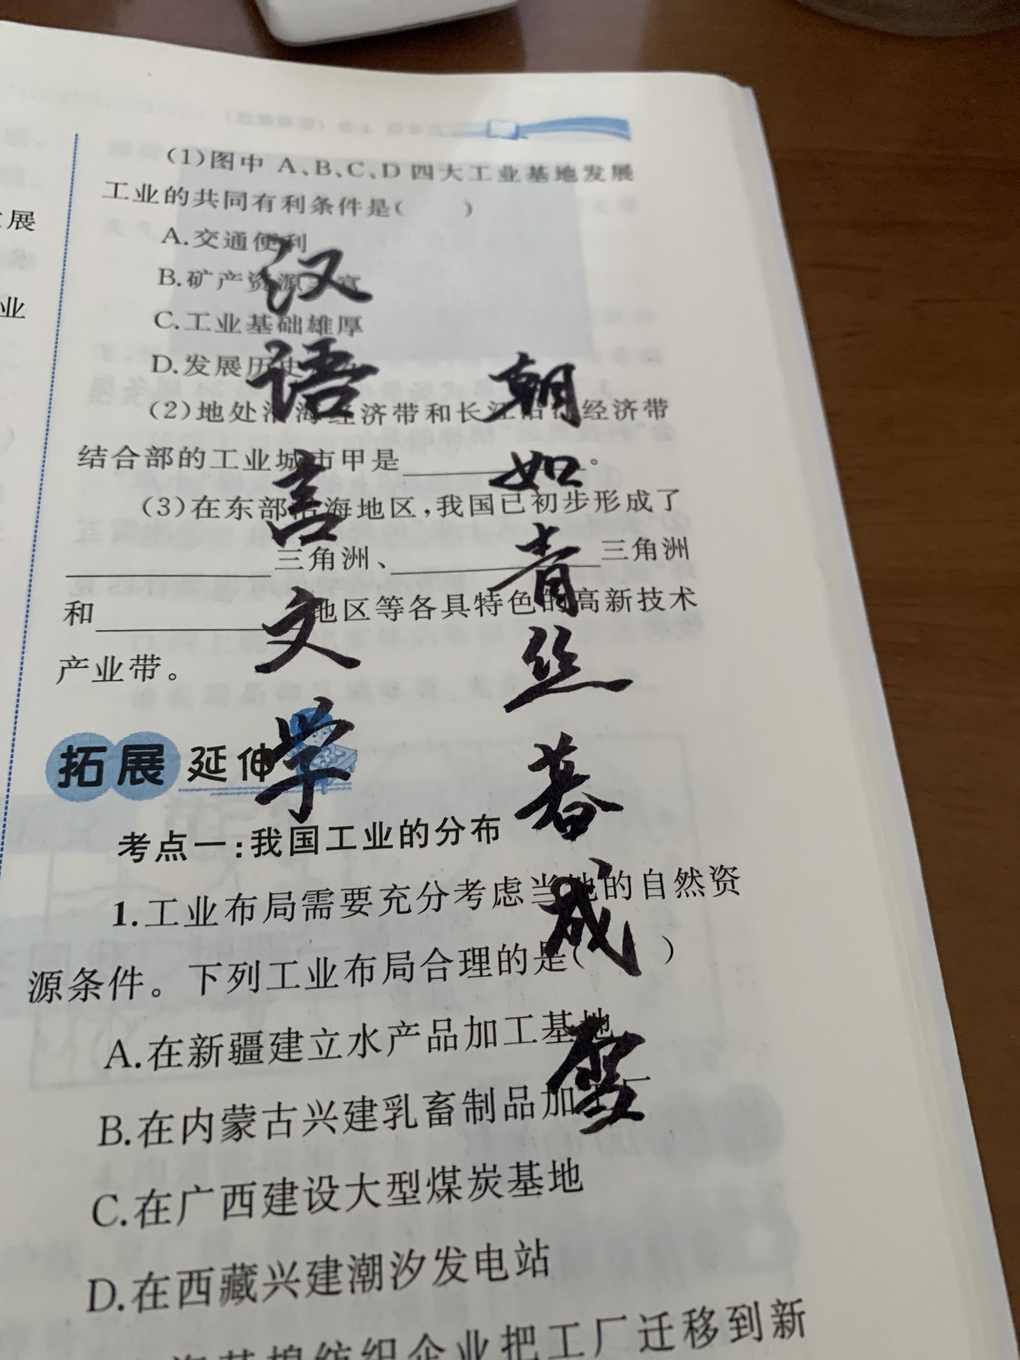 展
业
(1)图中 A、B、C、D 四大工业基地发展
工业的共同有利条件是(　　)
A.交通便利
B.矿产资源丰富
C.工业基础雄厚
D.发展历史
(2)地处沿海经济带和长江沿江经济带
结合部的工业城市甲是________。
(3)在东部沿海地区,我国已初步形成了
________三角洲、________三角洲
和________地区等各具特色的高新技术
产业带。
拓展延伸
考点一:我国工业的分布
1.工业布局需要充分考虑当地的自然资
源条件。下列工业布局合理的是(　　)
A.在新疆建立水产品加工基地
B.在内蒙古兴建乳畜制品加工厂
C.在广西建设大型煤炭基地
D.在西藏兴建潮汐发电站
企业把工厂迁移到新
朝如青丝暮成雪
汉语言文学